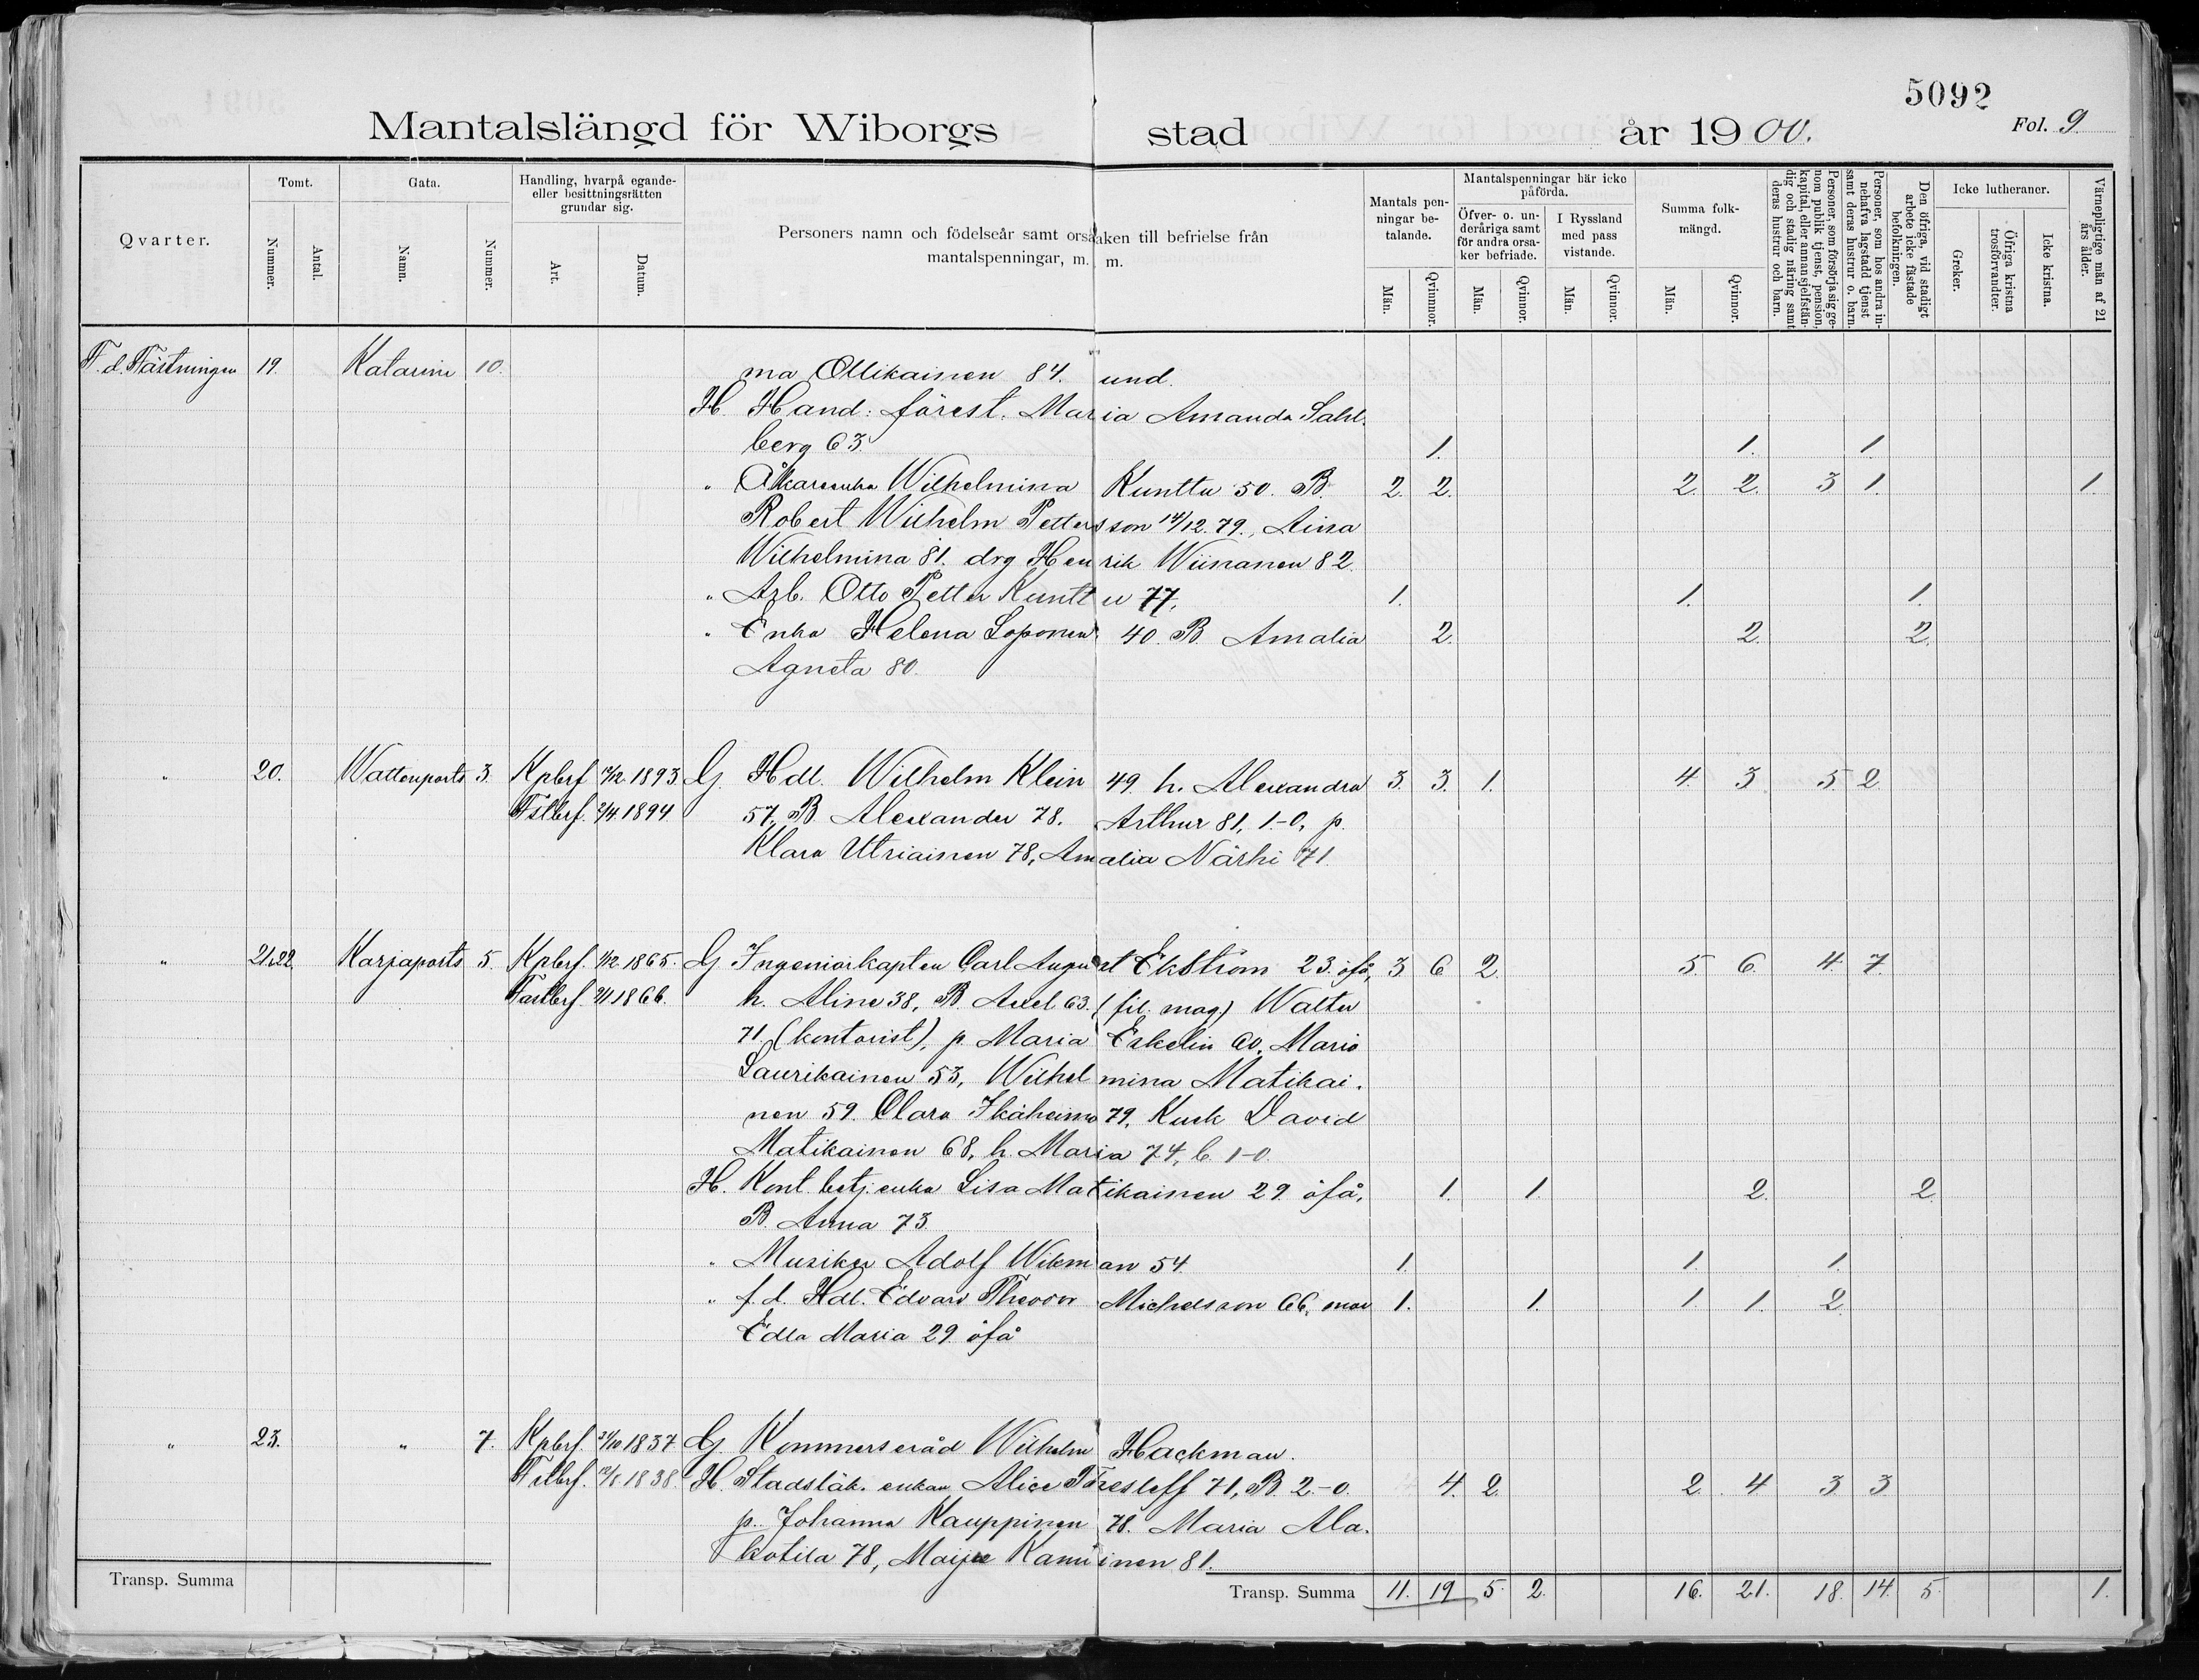 5092
Mantalslängd för Wiborgs stad år 1900.
Fol. 9.
Qvarter.
Tomt.
Nummer.
Antal.
Gata.
Namn.
Nummer.
Handling, hvarpå egande- eller besittningsrätten grundar sig.
Art.
Datum.
Personers namn och födelseår samt orsaken till befrielse från mantalspenningar, m. m.
Mantals penningar betalande.
Män.
Qvinnor.
Mantalspenningar här icke påförda.
Öfver- o. underåriga samt för andra orsaker befriade.
Män.
Qvinnor.
I Ryssland med pass vistande.
Män.
Qvinnor.
Summa folkmängd.
Män.
Qvinnor.
Personer, som försörja sig genom publik tjenst, pension, kapital, eller annan sjelfständig och stadig näring samt deras hustrur och barn.
Personer, som hos andra innehafva lagstadd tjenst samt deras hustrur o. barn.
Den öfriga, vid stadigt arbete icke fästade befolkningen.
Icke lutheraner.
Greker.
Öfriga kristna trosförvandter.
Icke kristna.
Värnepligtige män af 21 års ålder.
F. d. Fästningen 19. Katarine 10. ma Ollikainen 84. und.
H Hand: förest. Maria Amanda Sahl.
berg 63. 1. 1. 1.
" Åkareenka Wilhelmina Kunttu 50. B. 2. 2. 2. 2. 3 1. 1.
Robert Wilhelm Pettersson 14/12. 79., Aina
Wilhelmina 81. drg Henrik Wiinanen 82.
" Arb. Otto Petter Kunttu 77, 1. 1. 1.
" Enka Helena Loponen 40. B. Amalia 2. 2. 2.
Agneta 80.
" 20. Wattenports 3. Kpbrf 1893. G. Hdl. Wilhelm Klein 49 h. Alexandra 3. 3. 1. 4. 3 5. 2
Fstbrf. 2/4 1894 57, B. Alexander 78. Arthur 81, 1.-0, p.
Klara Utriainen 78, Amalia Närhi 71.
" 21.22. Karjaports 5. Kpbrf. 1/12 1865. G Ingeniörkapten Carl August Ekström 23. öfå, 3 6 2 5. 6. 4. 7.
Fastbrf. 1866. h. Aline 38, B. Axel 63. (fil. mag.) Walter
71 (kontorist), p. Maria Eskelin 60, Maria
Laurikainen 53, Wilhelmina Matikai.
nen 59. Clara Ikäheimo 79, Kusk David
Matikainen 68, h. Maria 74, b. 1-0.
H. Kont. betj. enka Lisa Matikainen 29 öfå, 1. 1. 2. 2.
B. Anna 73
" Musiker Adolf Wikman 54 1. 1. 1.
" f. d. Hdl. Edvard Theodor Michelsson 66, mor 1. 1. 1. 1. 2.
Edla Maria 29. öfå
" 23. " 7. Kpbrf. 1837 G. Kommerseråd Wilhelm Hackman.
Fstbrf. 1838. H. Stadsläk. enkan Alice Thesleff 71, B. 2-0. 4. 2. 2. 4 3 3
p. Johanna Kauppinen 78. Maria Ala.
kotila 78, Maija 81.
Transp. Summa
Transp. Summa 11. 19 5. 2. 16. 21. 18. 14. 5. 1.